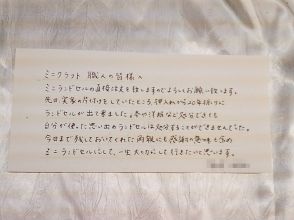 ミニクラフト 職人の皆様へ
ミニランドセルの直接注文を致しますのでよろしくお願い致します。
先日、実家の片付けをしていたところ、押入れから20年振りに
ランドセルが出て来ました。本や洋服など処分できても
自分が使った思い出のランドセルは処分することができませんでした。
今日まで残しておいてくれた両親にも感謝の意味も含め
ミニランドセルにして、一生大切にして行きたいと思います。